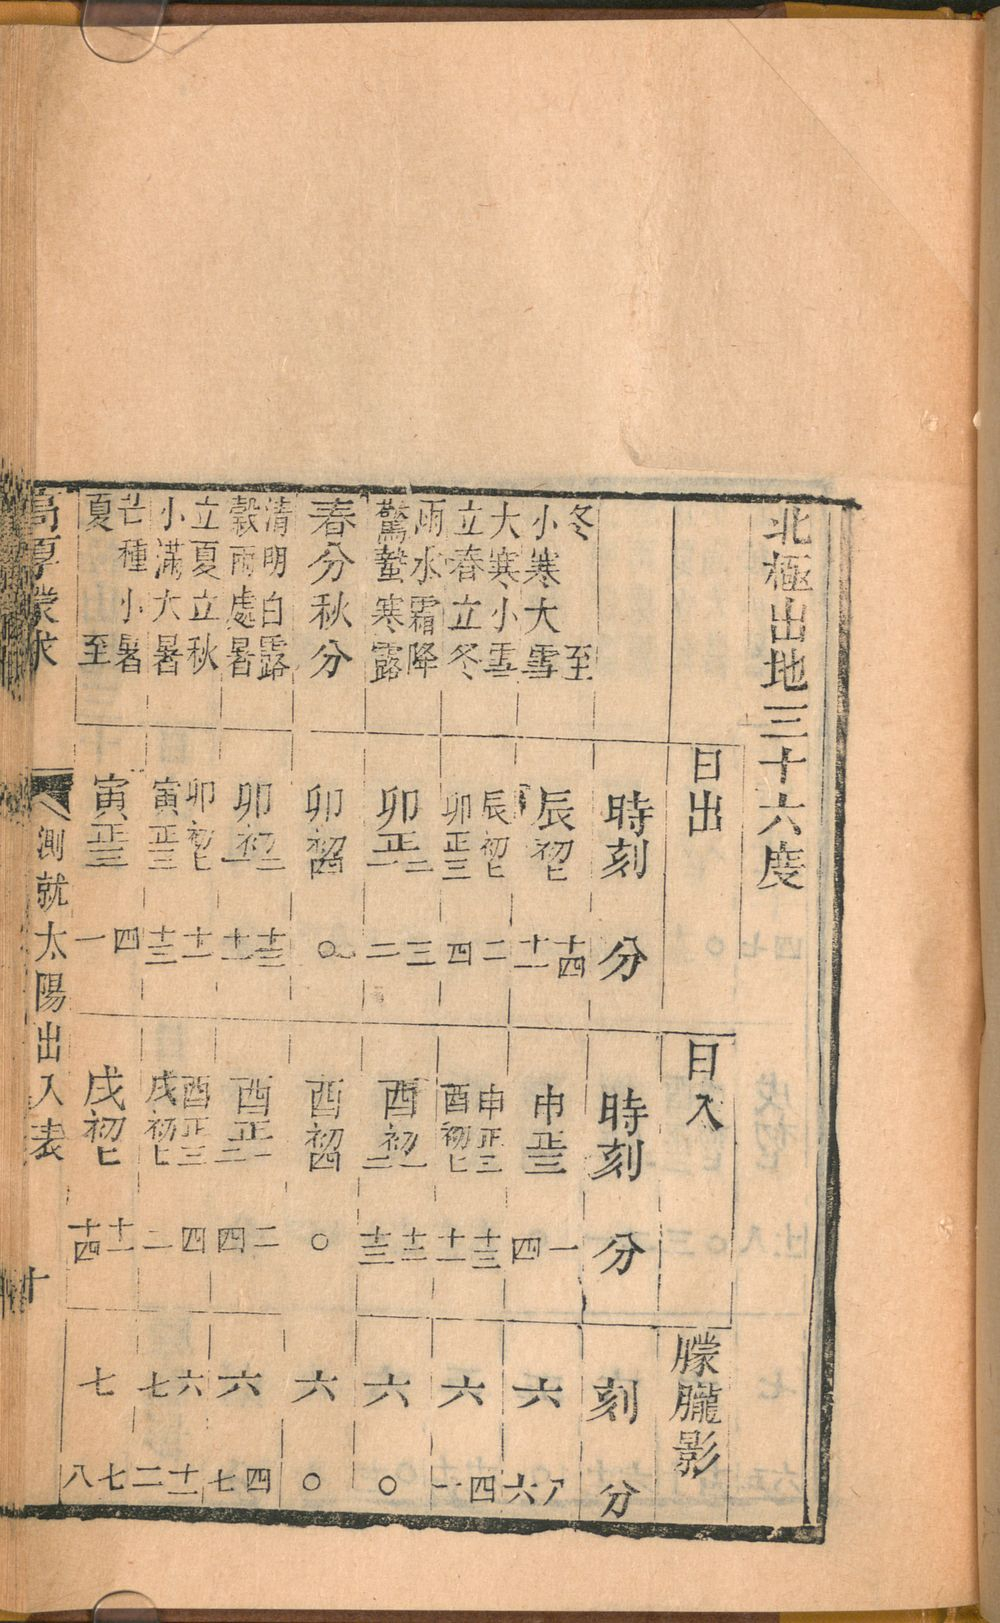 北極出地三十六度
日出 日入 朦朧影
時刻 分 時刻 分 刻 分
冬至 辰初七 十四 申正三 一 六 八
小寒大雪 十一 四 六
大寒小雪 辰初七 二 申正三 十三 六 四
立春立冬 卯正三 四 酉初七 十一 一
雨水霜降 卯正二 三 酉初一 十二 六 〇
驚蟄寒露 一 二 二 十三
春分秋分 卯初四 〇 酉初四 〇 六 〇
清明白露 卯初二 十三 酉正一 二 六 四
穀雨處暑 一 十二 二 四 七
立夏立秋 卯初七 十一 酉正三 四 六 十一
小滿大暑 寅正三 十三 戌初七 二 七 二
芒種小暑 寅正三 四 戌初七 十一 七 七
夏至 一 十四 八
高厚蒙求 測就太陽出入表 十